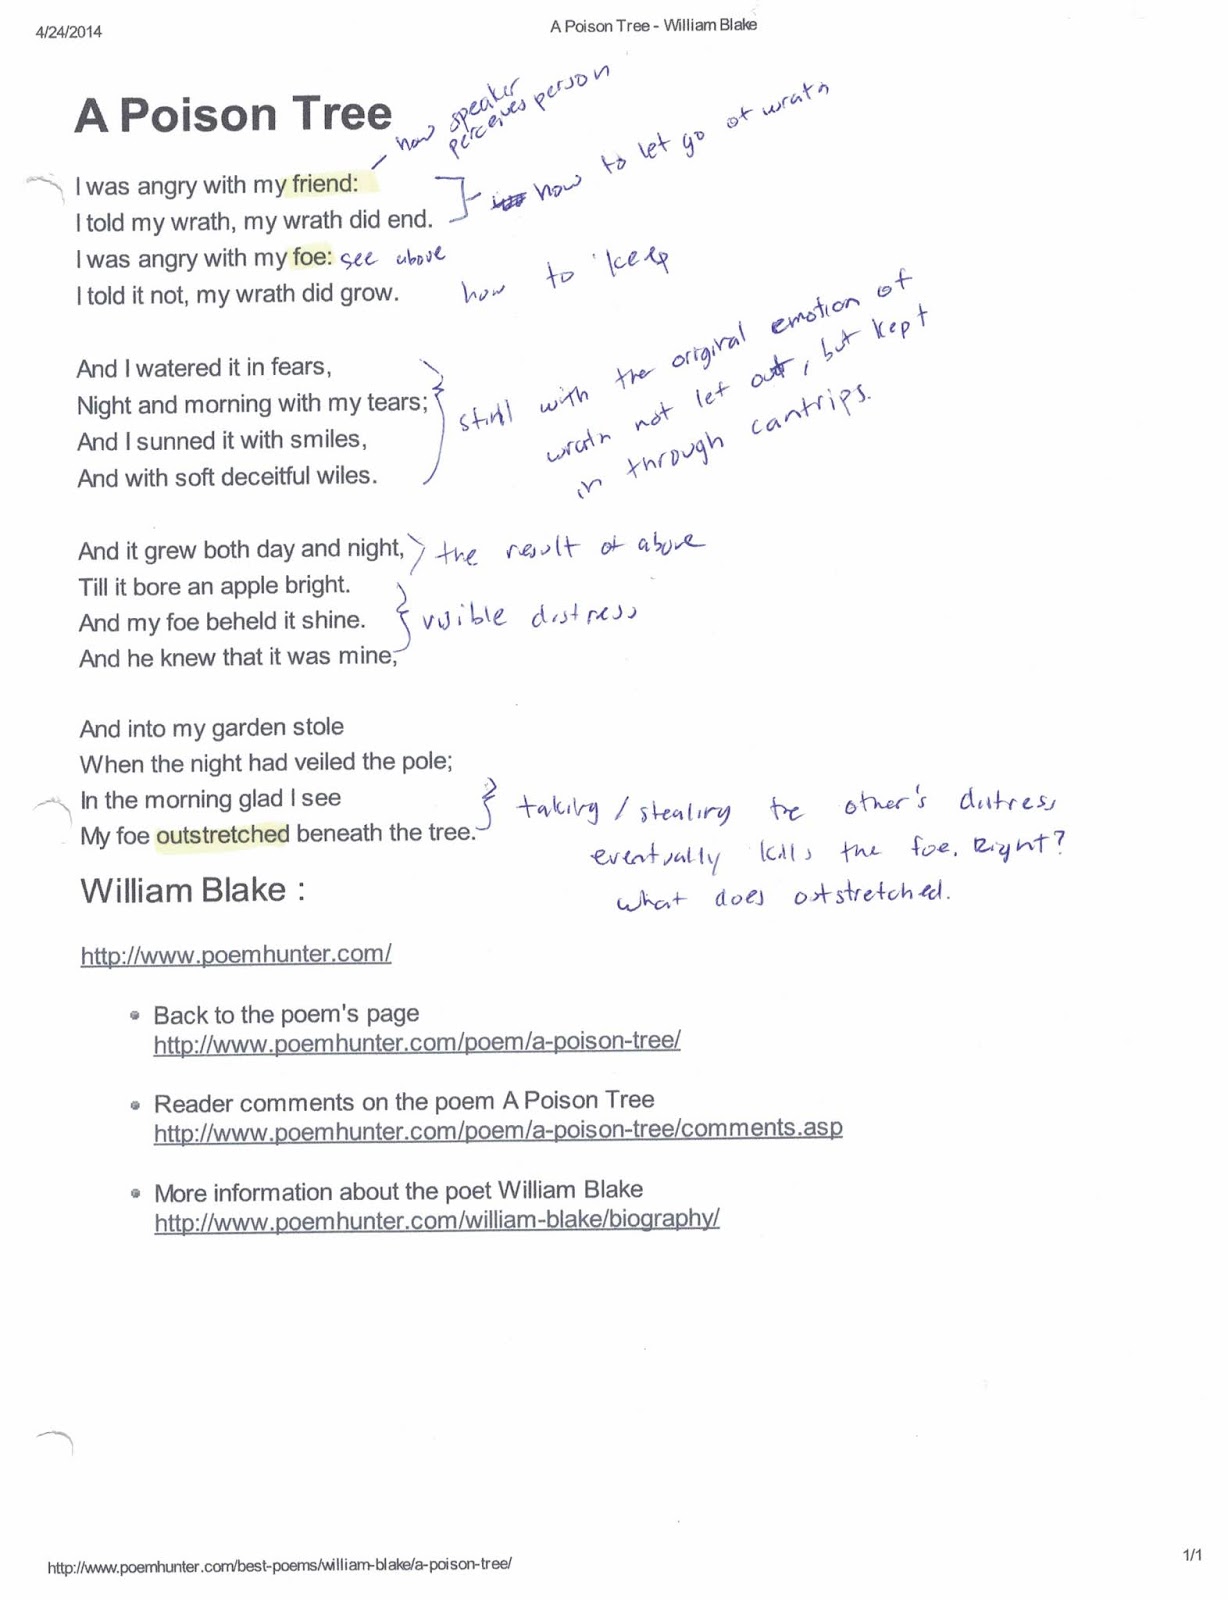 4/24/2014
A Poison Tree - William Blake
A Poison Tree
how speaker
perceives person
I was angry with my friend:
how to let go of wrath
I told my wrath, my wrath did end.
I was angry with my foe: see above
I told it not, my wrath did grow. how to keep
And I watered it in fears,
Night and morning with my tears;
And I sunned it with smiles,
And with soft deceitful wiles.
still with the original emotion of
wrath not let out, but kept
in through cantrips.
And it grew both day and night, the result of above
Till it bore an apple bright.
And my foe beheld it shine. visible distress
And he knew that it was mine,
And into my garden stole
When the night had veiled the pole;
In the morning glad I see
My foe outstretched beneath the tree.
taking / stealing the other's distress
eventually kills the foe. Right?
what does outstretched.
William Blake :
http://www.poemhunter.com/
Back to the poem's page
http://www.poemhunter.com/poem/a-poison-tree/
Reader comments on the poem A Poison Tree
http://www.poemhunter.com/poem/a-poison-tree/comments.asp
More information about the poet William Blake
http://www.poemhunter.com/william-blake/biography/
http://www.poemhunter.com/best-poems/william-blake/a-poison-tree/
1/1